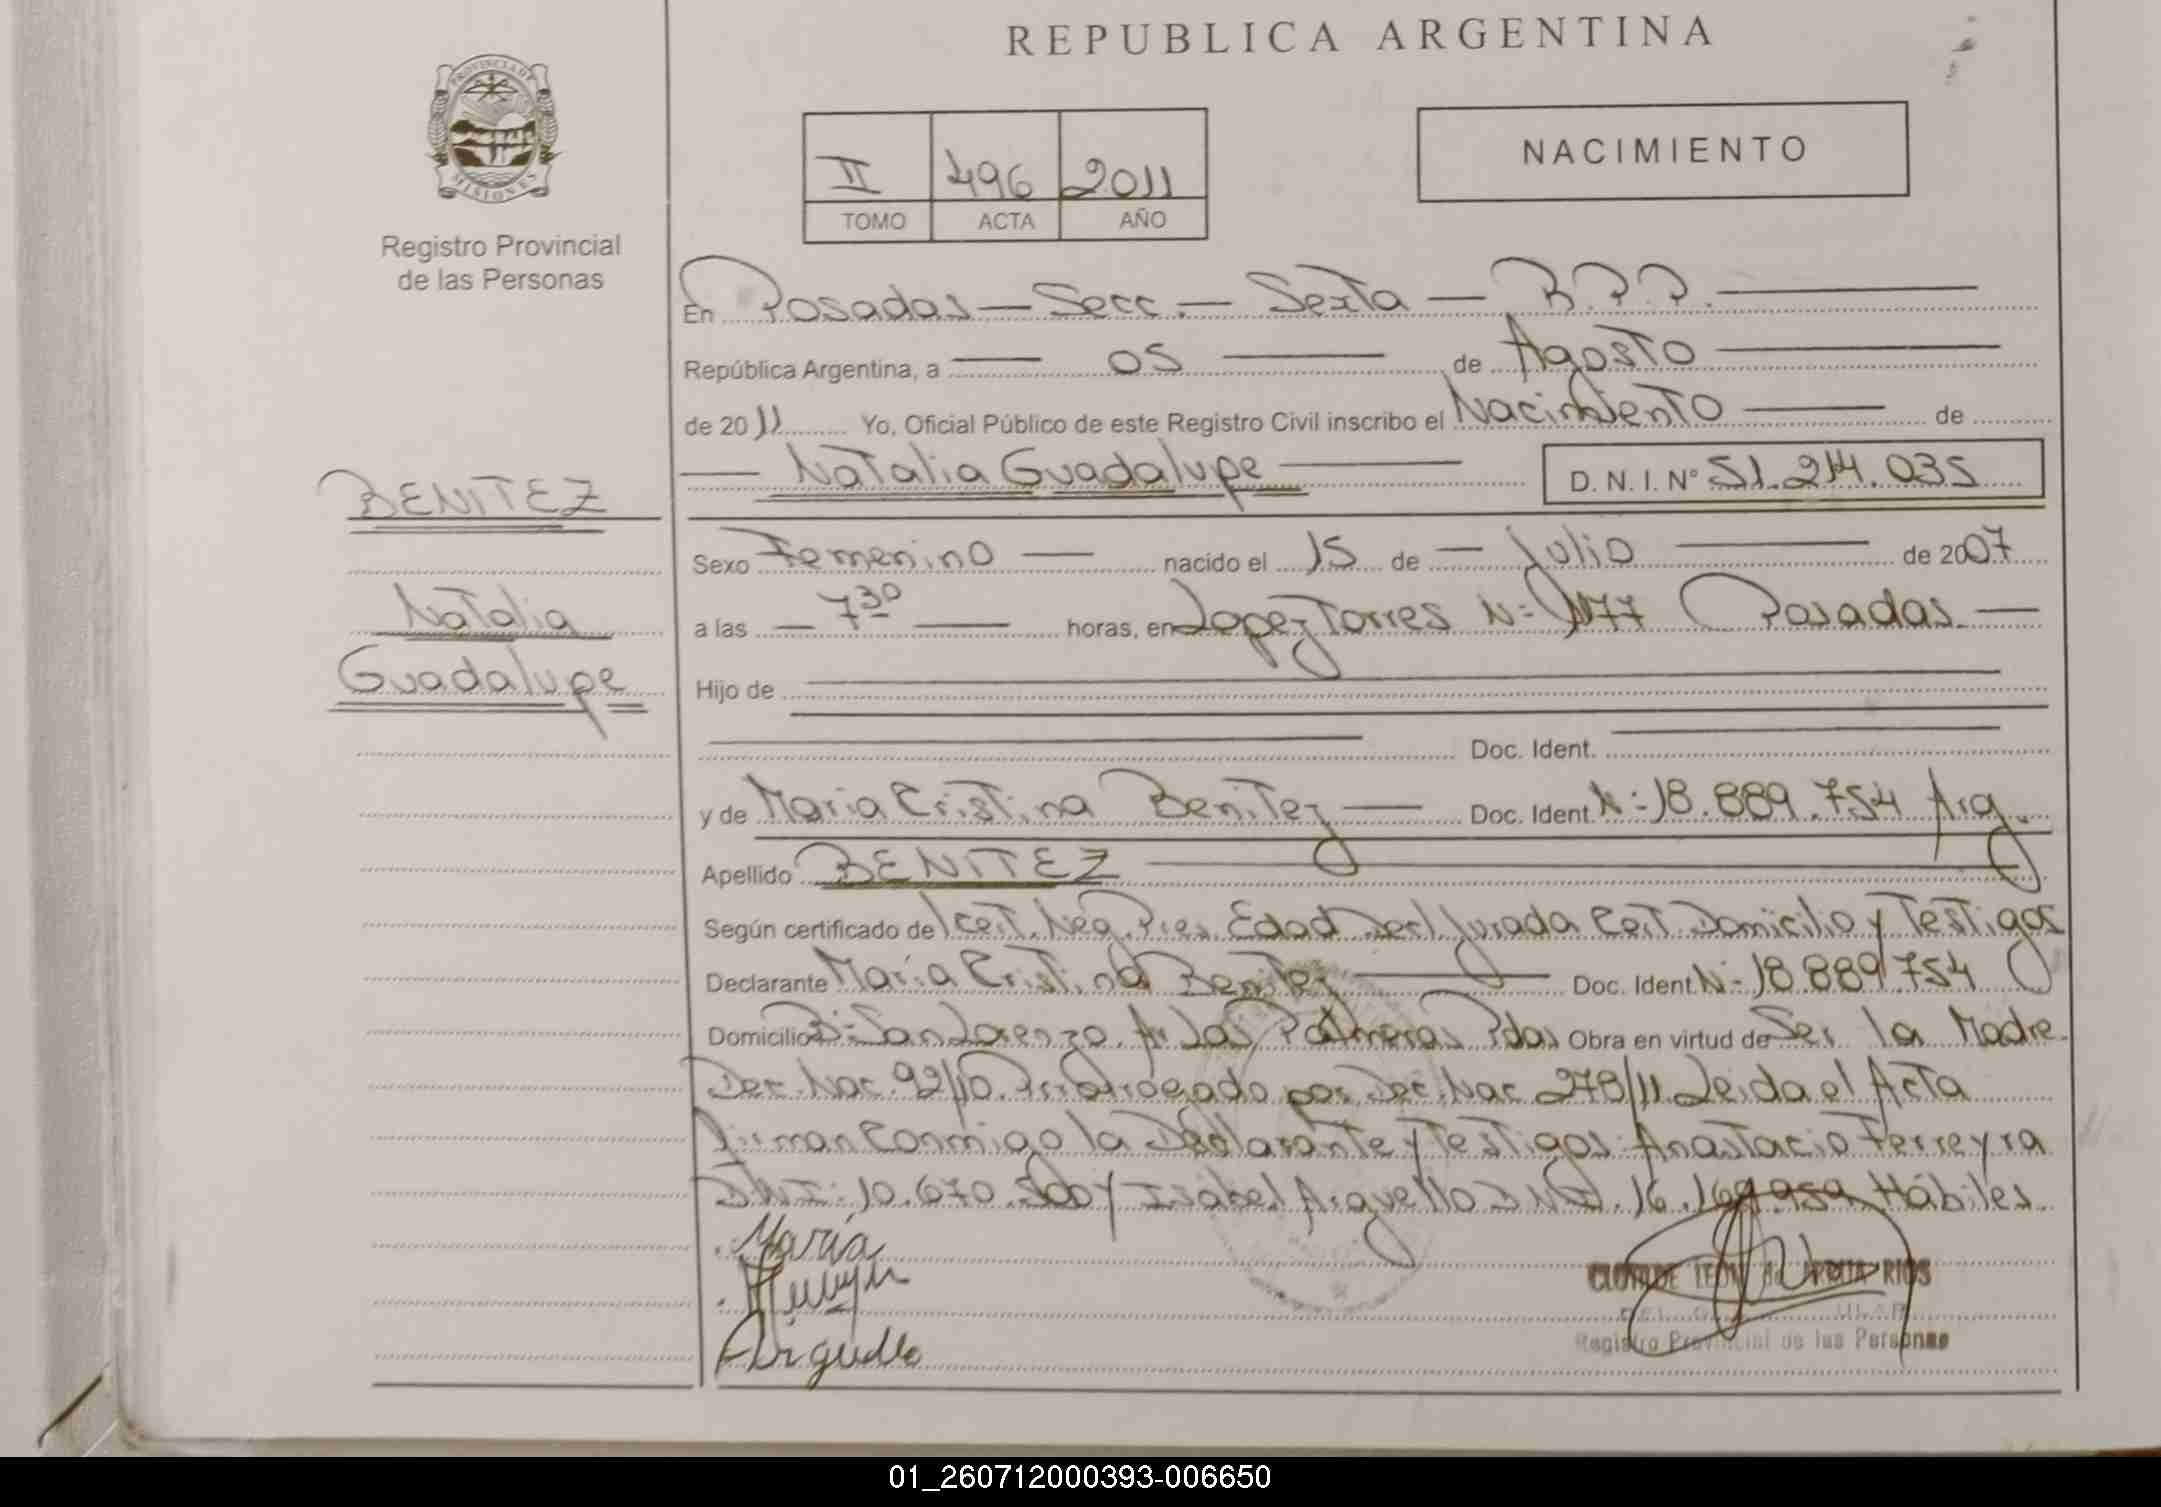 REPUBLICA ARGENTINA
PROVINCIA DE MISIONES
Registro Provincial
de las Personas
II 496 2011
TOMO ACTA AÑO
NACIMIENTO
En Posadas — Secc. — Sexta — R.P.P.
República Argentina, a — 05 — de Agosto
de 2011 Yo, Oficial Público de este Registro Civil inscribo el Nacimiento — de
— Natalia Guadalupe — D. N. I. Nº 51.214.035
BENITEZ
Natalia
Guadalupe
Sexo Femenino — nacido el 15 de — Julio — de 2007
a las — 7 30 — horas, en Lopez Torres Posadas —
Hijo de
Doc. Ident.
y de Maria Cristina Benitez — Doc. Ident. N: 18.889.754 Arg.
Apellido BENITEZ
Según certificado de Cert. Neg. Pres. Edad Decl. Jurada Cert. Domicilio y Testigos
Declarante Maria Cristina Benitez — Doc. Ident. N: 18.889.754
Domicilio B: San Lorenzo Las Palmeras Pdas Obra en virtud de Ser la Madre
Dec. Nac. 92/10 Prorrogado por Dec. Nac 278/11. Leida el Acta
firman conmigo la Declarante y Testigos: Anastacio Ferreyra
DNI: 10.670. y Isabel Arguello DNI. 16.169.959 Hábiles
María
Arguello
CLOTILDE LEON de RIOS
Registro Provincial de las Personas
01_260712000393-006650